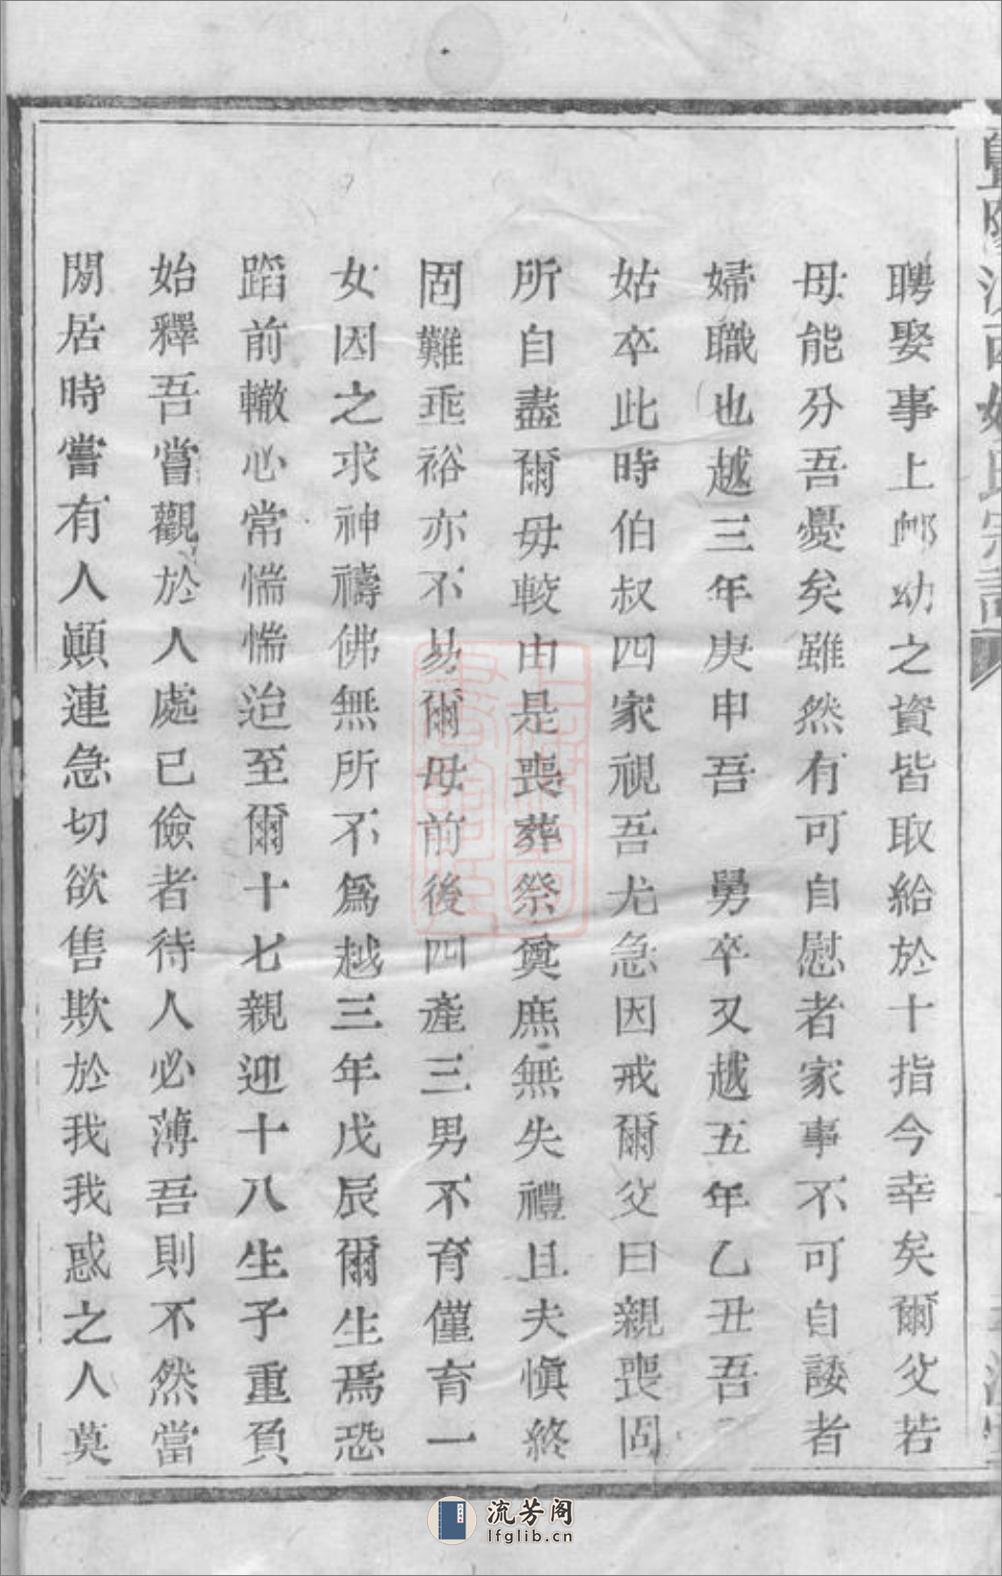 聘娶事上邮幼之資皆取給於十指今幸矣爾父若
母能分吾憂矣雖然有可自慰者家事不可自諉者
婦職也越三年庚申吾　舅卒又越五年乙丑吾
姑卒此時伯叔四家視吾尤急因戒爾父曰親喪固
所自盡爾毋較由是喪葬祭奠庶無失禮且夫慎終
固難垂裕亦不易爾母前後四產三男不育僅育一
女因之求神禱佛無所不爲越三年戊辰爾生焉恐
蹈前轍心常惴惴迨至爾十七親迎十八生子重負
始釋吾嘗觀於人處已儉者待人必薄吾則不然當
閒居時嘗有人顛連急切欲售欺於我我惑之人莫
暨陽
宗譜
流芳阁
lfglib.cn